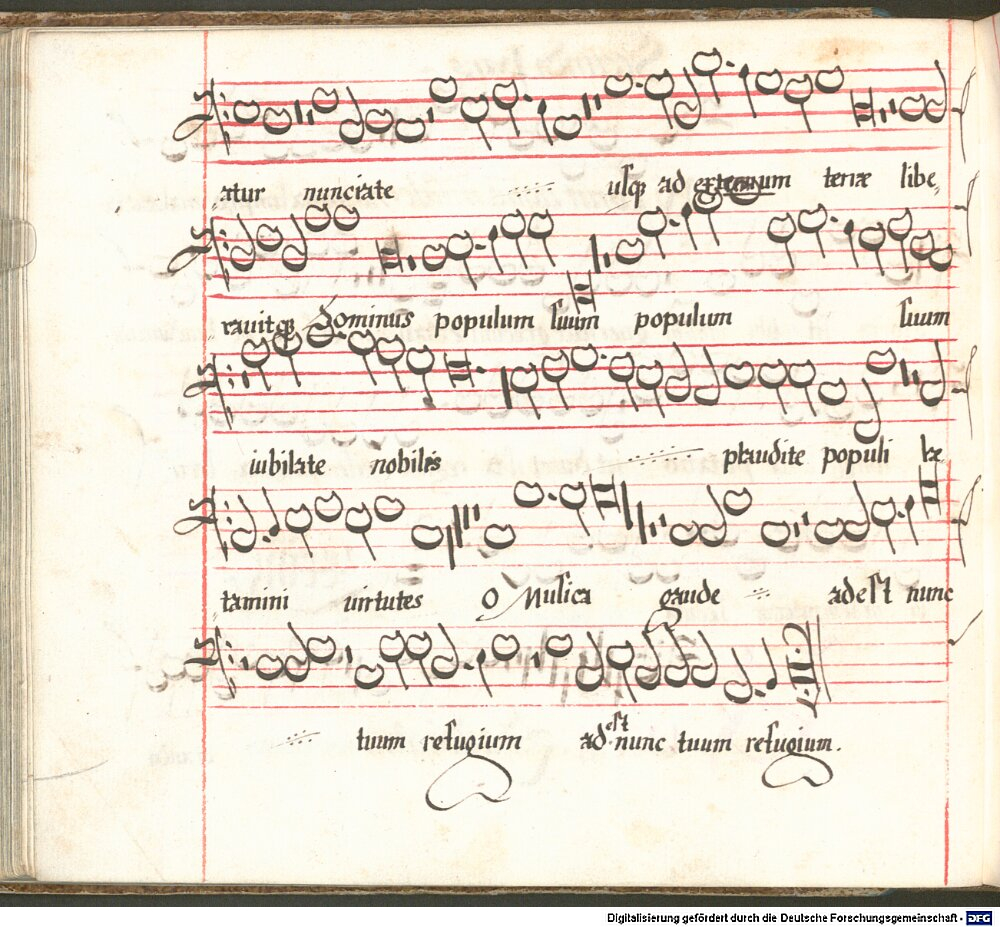 atur nunciate usq; ad extremum terræ libe,
ravitq; Dominus populum suum populum suum
iubilate nobiles plaudite populi læ
tamini virtutes O Musica gaude adest nunc
tuum refugium adest nunc tuum refugium.
Digitalisierung gefördert durch die Deutsche Forschungsgemeinschaft - DFG